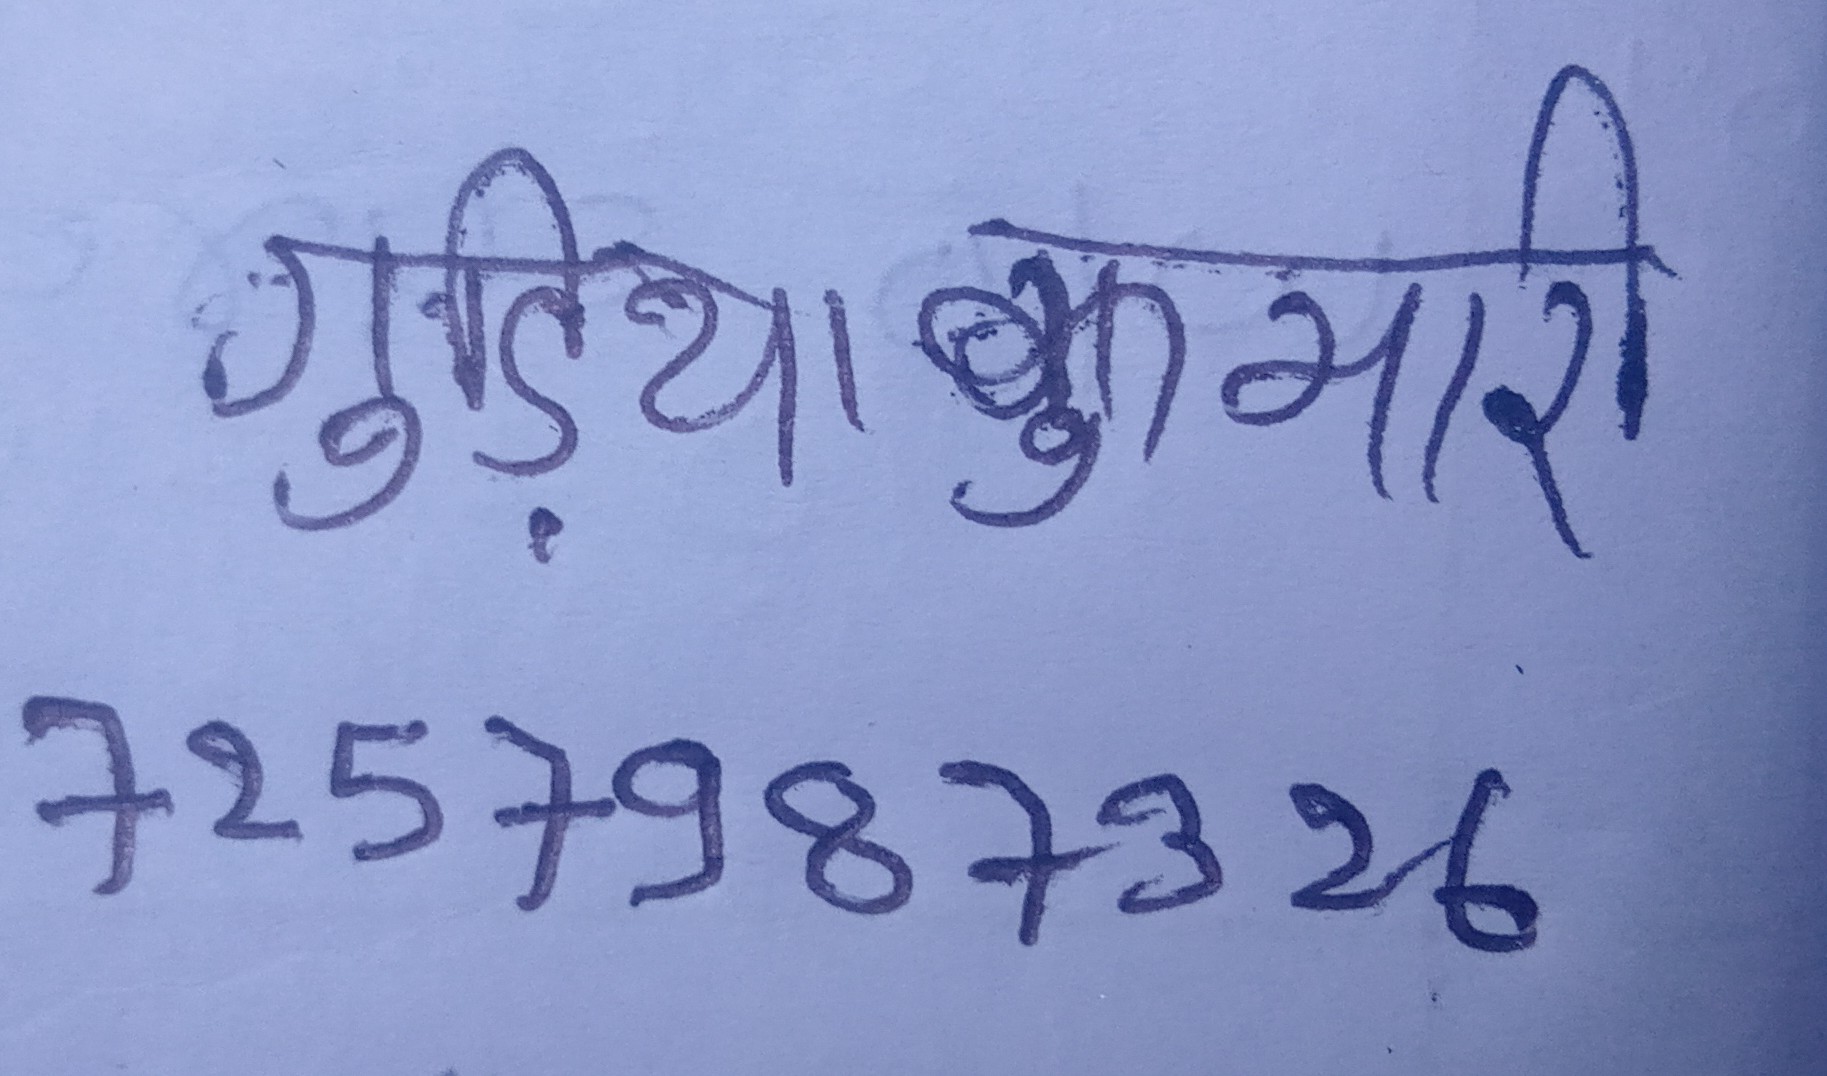 गुड़िया कुमारी
7257987326